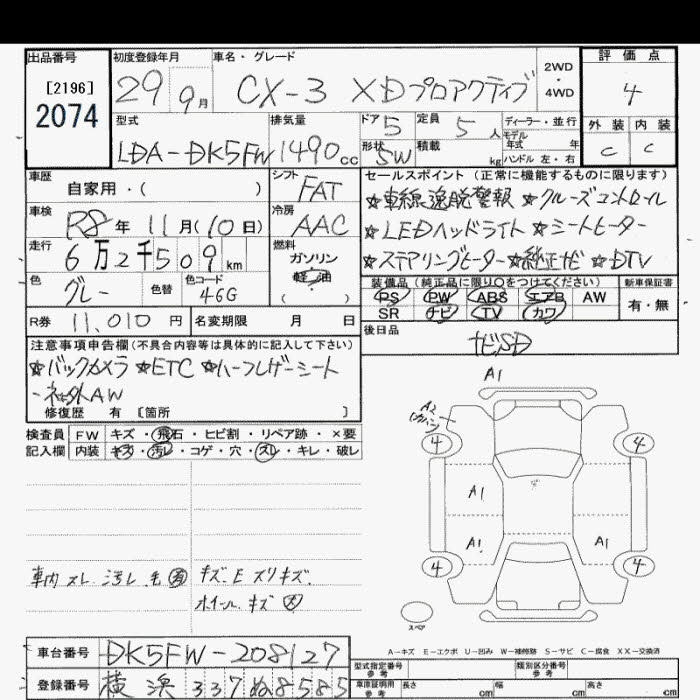 出品番号
[2196]
2074
初度登録年月
29 9月
車名・グレード
CX-3 XDプロアクティブ
2WD
・
4WD
評価点
4
外装 内装
C C
型式
LDA-DK5FW
排気量
1490cc
ドア 5
定員 5人
ディーラー・並行
モデル年式 年
形状 SW
積載 kg
ハンドル 左・右
車歴
自家用・( )
シフト
FAT
車検
R8年 11月(10日)
冷房
AAC
走行
6万2千509km
燃料
ガソリン
軽油
( )
色
グレー
色替
色コード
46G
R券 11,010円
名変期限 月 日
セールスポイント(正常に機能するものに限ります)
☆車線逸脱警報 ☆クルーズコントロール
☆LEDヘッドライト ☆シートヒーター
☆ステアリングヒーター ☆純正ナビ ☆DTV
装備品(純正品に限り○をつけてください)
新車保証書
PS PW ABS エアB AW
SR ナビ TV カワ
有・無
後日品
ナビSD
注意事項申告欄(不具合内容等は具体的に記入して下さい)
☆バックカメラ ☆ETC ☆ハーフレザーシート
・社外AW
修復歴 有 〔箇所 〕
検査員
記入欄
FW キズ・飛石・ヒビ割・リペア跡・×要
内装 キズ・汚レ・コゲ・穴・スレ・キレ・破レ
車内 スレ 汚レ 毛 有 キズ.E スリキズ.
ホイールキズ 大
A1
A2
4
4
A1
A1
A1
4
4
スペア
A－キズ E－エクボ U－凹み W－補修跡 S－サビ C－腐食 XX－交換済
車台番号 DK5FW-208127
登録番号 横浜 337 ぬ 8585
型式指定番号
参考
類別区分番号
参考
車庫証明用
参考
長さ cm 幅 cm 高さ cm